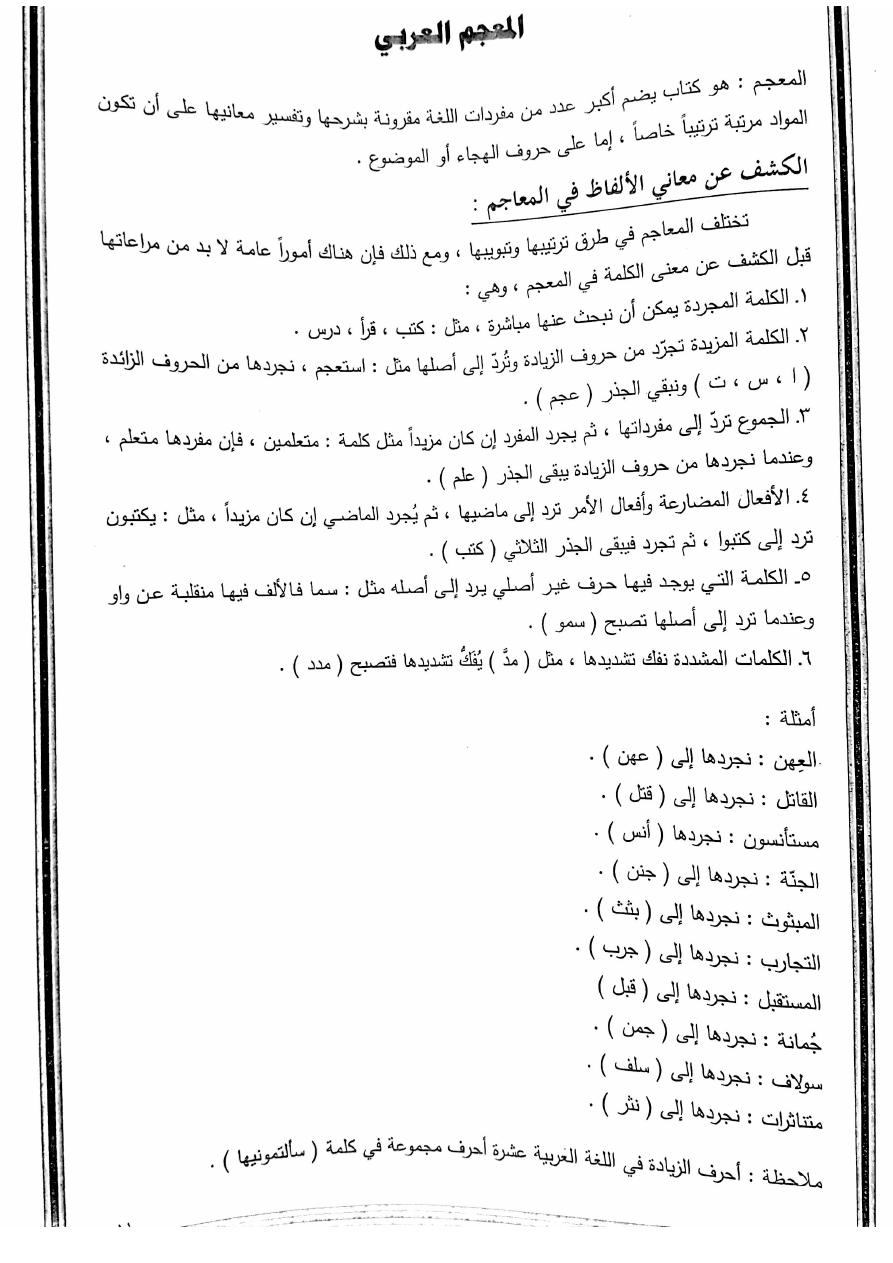 المعجم العربي
المعجم : هو كتاب يضم أكبر عدد من مفردات اللغة مقرونة بشرحها وتفسير معانيها على أن تكون
المواد مرتبة ترتيباً خاصاً ، إما على حروف الهجاء أو الموضوع .
الكشف عن معاني الألفاظ في المعاجم :
تختلف المعاجم في طرق ترتيبها وتبويبها ، ومع ذلك فإن هناك أموراً عامة لا بد من مراعاتها
قبل الكشف عن معنى الكلمة في المعجم ، وهي :
١. الكلمة المجردة يمكن أن نبحث عنها مباشرة ، مثل : كتب ، قرأ ، درس .
٢. الكلمة المزيدة تجرّد من حروف الزيادة وتُردّ إلى أصلها مثل : استعجم ، نجردها من الحروف الزائدة
( ا ، س ، ت ) ونبقي الجذر ( عجم ) .
٣. الجموع تردّ إلى مفرداتها ، ثم يجرد المفرد إن كان مزيداً مثل كلمة : متعلمين ، فإن مفردها متعلم ،
وعندما نجردها من حروف الزيادة يبقى الجذر ( علم ) .
٤. الأفعال المضارعة وأفعال الأمر ترد إلى ماضيها ، ثم يُجرد الماضي إن كان مزيداً ، مثل : يكتبون
ترد إلى كتبوا ، ثم تجرد فيبقى الجذر الثلاثي ( كتب ) .
٥ـ الكلمة التي يوجد فيها حرف غير أصلي يرد إلى أصله مثل : سما فالألف فيها منقلبة عن واو
وعندما ترد إلى أصلها تصبح ( سمو ) .
٦. الكلمات المشددة نفك تشديدها ، مثل ( مدَّ ) يُفَكُّ تشديدها فتصبح ( مدد ) .
أمثلة :
العِهن : نجردها إلى ( عهن ) .
القاتل : نجردها إلى ( قتل ) .
مستأنسون : نجردها ( أنس ) .
الجنّة : نجردها إلى ( جنن ) .
المبثوث : نجردها إلى ( بثث ) .
التجارب : نجردها إلى ( جرب ) .
المستقبل : نجردها إلى ( قبل )
جُمانة : نجردها إلى ( جمن ) .
سولاف : نجردها إلى ( سلف ) .
متناثرات : نجردها إلى ( نثر ) .
ملاحظة : أحرف الزيادة في اللغة العربية عشرة أحرف مجموعة في كلمة ( سألتمونيها ) .